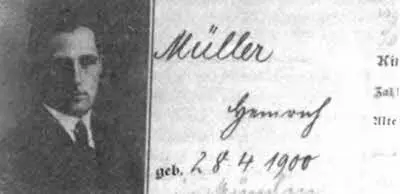 Müller
Heinrich
geb. 28.4.1900
Kin
Zahl
Alte